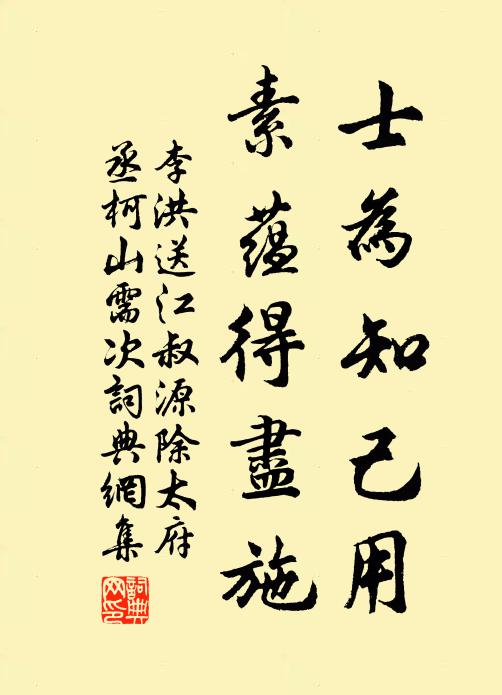 士為知己用
素蘊得盡施
李洪送江叔源除太府
丞柯山需次詞典網集